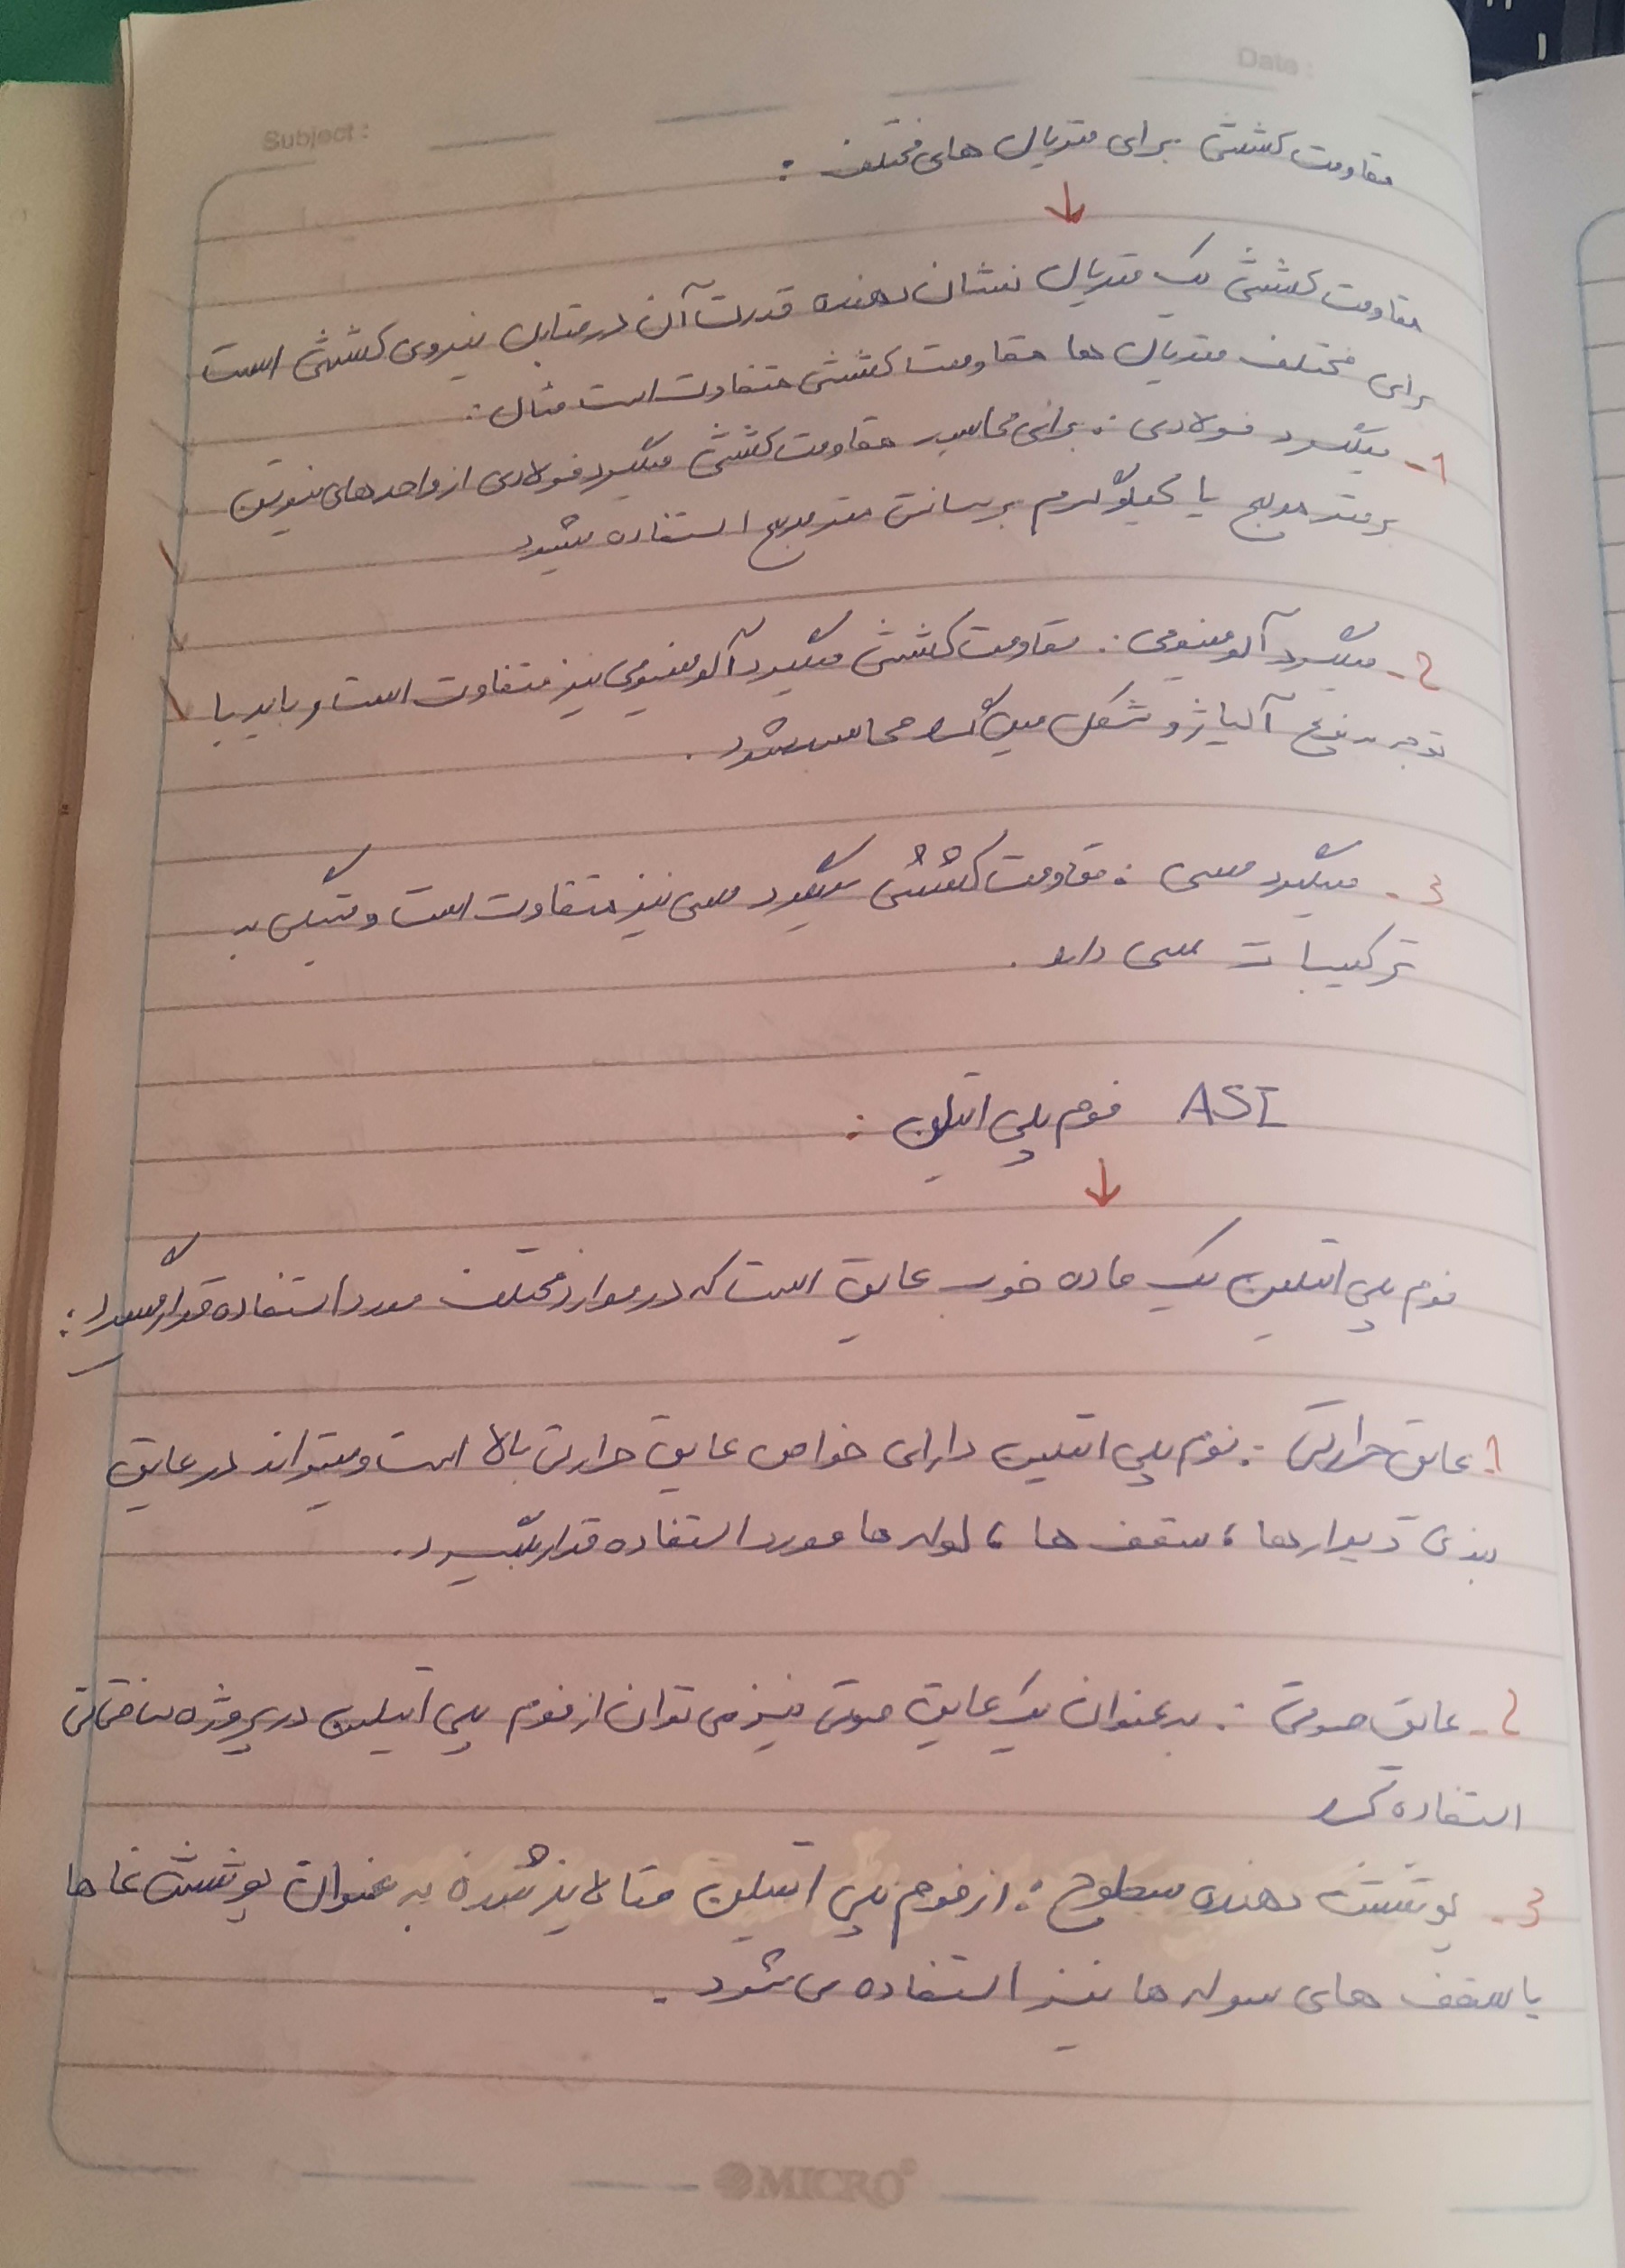 Date :
Subject :
مقاومت کششی برای متریال های مختلف :
مقاومت کششی یک متریال نشان دهنده قدرت آن در مقابل نیروی کششی است
برای مختلف متریال ها مقاومت کششی متفاوت است مثال :
1- میلگرد فولادی : برای محاسبه مقاومت کششی میلگرد فولادی از واحدهای نیوتن
بر متر مربع یا کیلوگرم بر سانتی متر مربع استفاده میشود
2- میلگرد آلومینیومی : مقاومت کششی میلگرد آلومینیومی نیز متفاوت است و باید با
توجه به نوع آلیاژ و شکل میلگرد محاسبه شود .
3- میلگرد مسی : مقاومت کششی میلگرد مسی نیز متفاوت است و بستگی به
ترکیبات مسی دارد .
ASI فوم پلی اتیلن :
فوم پلی اتیلین یک ماده خوب عایق است که در موارد مختلف مورد استفاده قرار میگیرد :
1- عایق حرارتی : فوم پلی اتیلین دارای خواص عایق حرارتی بالا است و میتواند در عایق
بندی دیوارها ، سقف ها ، لوله ها مورد استفاده قرار بگیرد .
2- عایق صوتی : به عنوان یک عایق صوتی نیز می توان از فوم پلی اتیلین در پروژه ساختمانی
استفاده کرد
3- پوشش دهنده سطوح : از فوم پلی اتیلن متالایز شده به عنوان پوشش نما ها
یا سقف های سوله ها نیز استفاده می شود .
MICRO